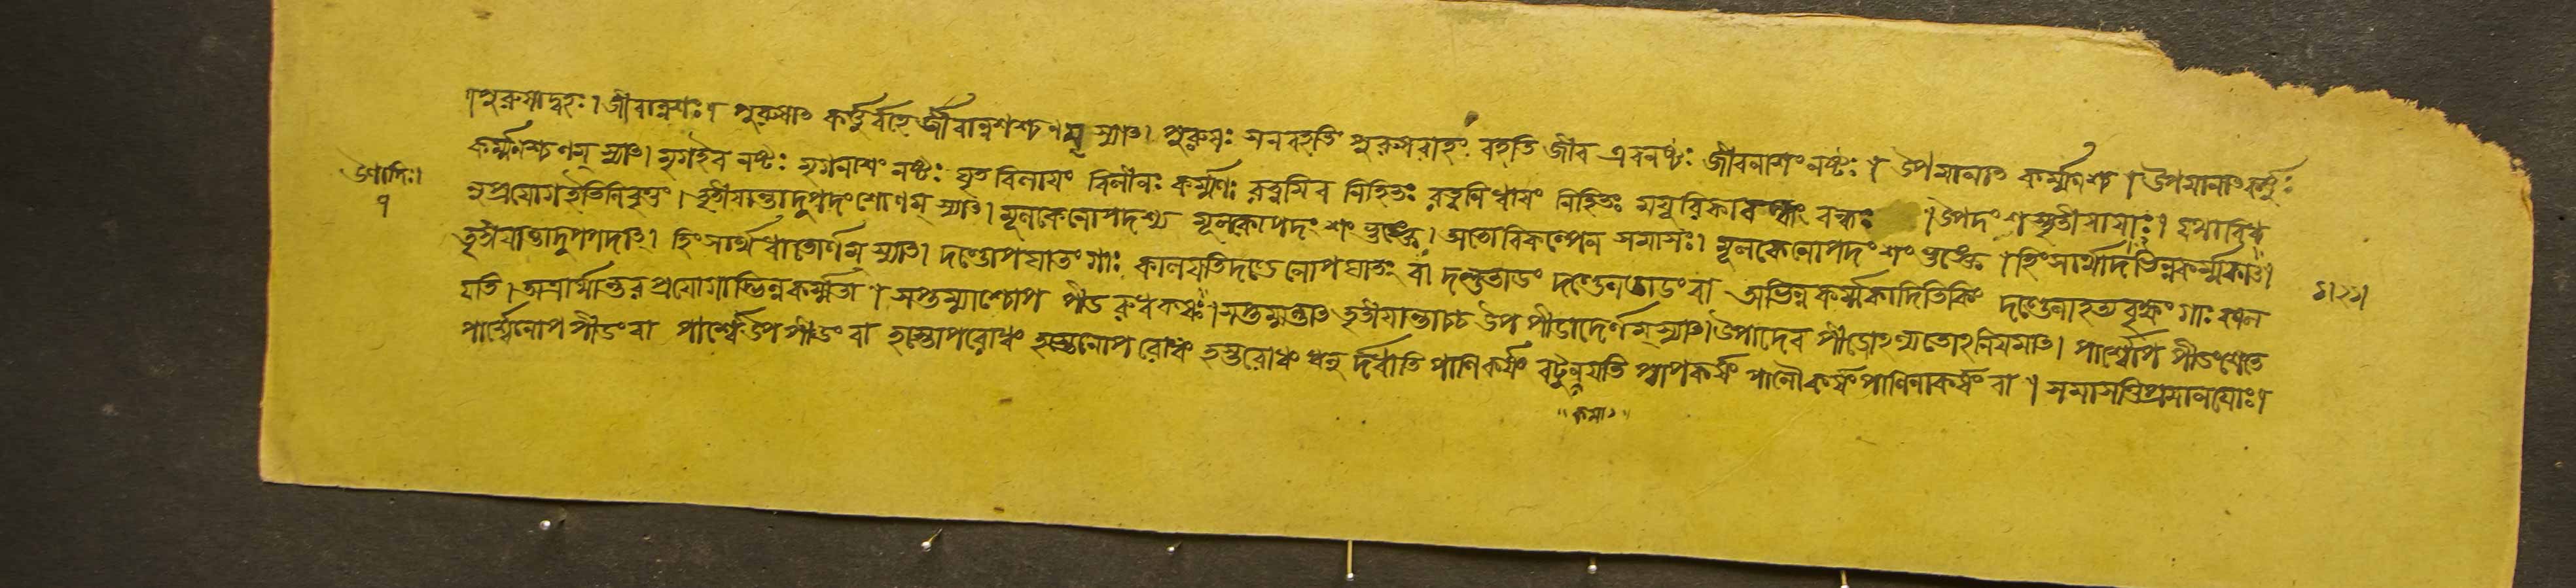 ।পুরুষাদ্বহঃ। জীবান্নশঃ। পুরুষাৎ কর্ত্তুর্বহে র্জীবান্নশশ্চ ণম্ স্যাৎ। পুরুষঃ সন বহতি পুরুষবাহং বহতি জীব এব নষ্টঃ জীবনাশং নষ্টঃ । উপমানাৎ কর্ম্মণশ্চ । উপমানাৎ কর্ত্তুঃ
কর্ম্মণশ্চ ণম্ স্যাৎ। মৃগ ইব নষ্টঃ মৃগনাশং নষ্টঃ ঘৃত বিলায়ং বিলীনঃ কর্ম্মণঃ রত্নমিব নিহিতঃ রত্ননিধায়ং নিহিতঃ ময়ূরিকাবন্ধং বন্ধঃ । উপদংশস্তৃতীয়ায়াঃ। যথাবিধ্য
নুপ্রয়োগ ইতি নিবৃত্তং। তৃতীয়ান্তাদুপদংশো ণম্ স্যাৎ। মূলকেনোপদশ্য মূলকোপদংশং ভুঙ্ক্তে। অতো বিকল্পেন সমাসঃ। মূলকেনোপদংশং ভুঙ্ক্তে । হিংসার্থাদভিন্নকর্ম্মকাৎ।
তৃতীয়ান্তাদুপপদাৎ। হিংসার্থধাতোর্ণম্ স্যাৎ। দণ্ডোপঘাতং গাঃ কালয়তি দণ্ডেনোপঘাতং বা দণ্ডতাডং দণ্ডেনতাডং বা অভিন্নকর্ম্মকাদিতি কিং দণ্ডেনাহত্য বৃক্ষং গাঃ কাল
য়তি। অত্রার্থান্তর প্রয়োগাদ্ভিন্নকর্ম্মতা । সপ্তম্যাশ্চোপ পীড রুধ কৃষঃ। সপ্তম্যন্তাৎ তৃতীয়ান্তাচ্চ উপ পীডাদের্ণম্ স্যাৎ। উপাদেব পীডোঽন্যতোঽনিয়মাৎ। পার্শ্বোপ পীডং শেতে
পার্শ্বেনোপপীডং বা পার্শ্বে উপপীডং বা হস্তোপরোধং হস্তেনোপরোধং হস্তরোধং ধনু র্দধাতি পাণিকর্ষং বটুন্নয়তি পাণৌকর্ষং পাণিনাকর্ষং বা । সমাসত্তিপ্রমানয়োঃ।
উণাদিঃ।
১